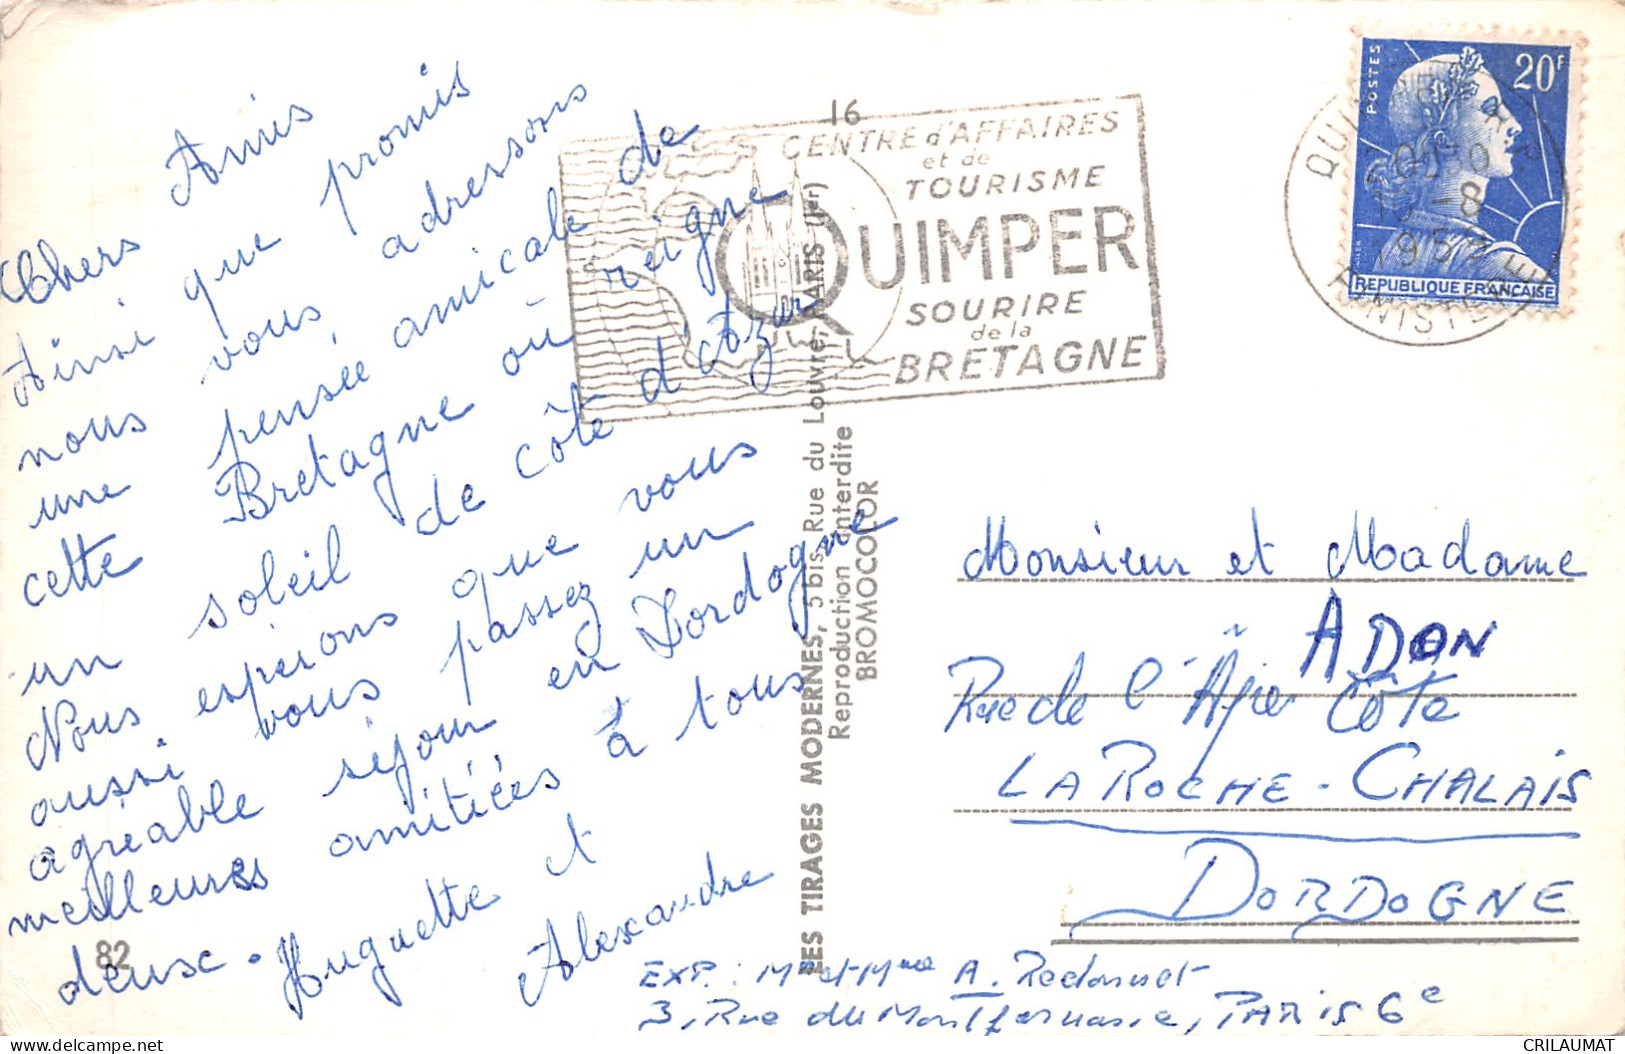 Chers Amis
Ainsi que promis
nous vous adressons
une pensée amicale de
cette Bretagne où reigne
un soleil de côte d'Azur
Nous esperons que vous
aussi vous passez un
agréable séjour en Dordogne
meilleures amitiées à tous
deusc.
Huguette et
Alexandre
82
16
CENTRE d'AFFAIRES
et de
TOURISME
QUIMPER
SOURIRE
de la
BRETAGNE
LES TIRAGES MODERNES, 5 bis Rue du Louvre, PARIS (Ier)
Reproduction interdite
BROMOCOLOR
POSTES
20F
REPUBLIQUE FRANÇAISE
FINISTERE
Monsieur et Madame
ADON
Rue de l'
Côte
LA ROCHE-CHALAIS
DORDOGNE
EXP.: Mr et Mme A. Redonnet
3, Rue du Montparnasse, PARIS 6e
CRILAUMAT